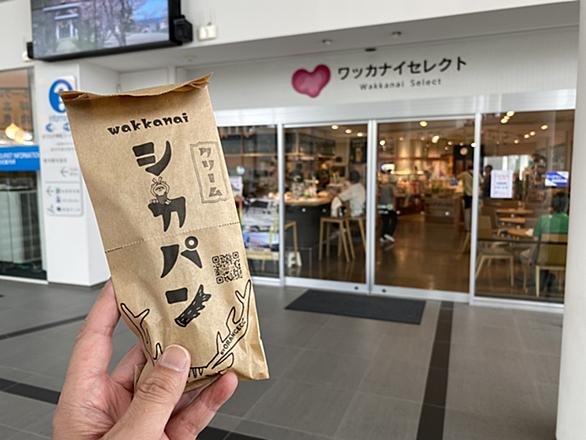 ワッカナイセレクト
Wakkanai Select
wakkanai
シカパン
クリーム